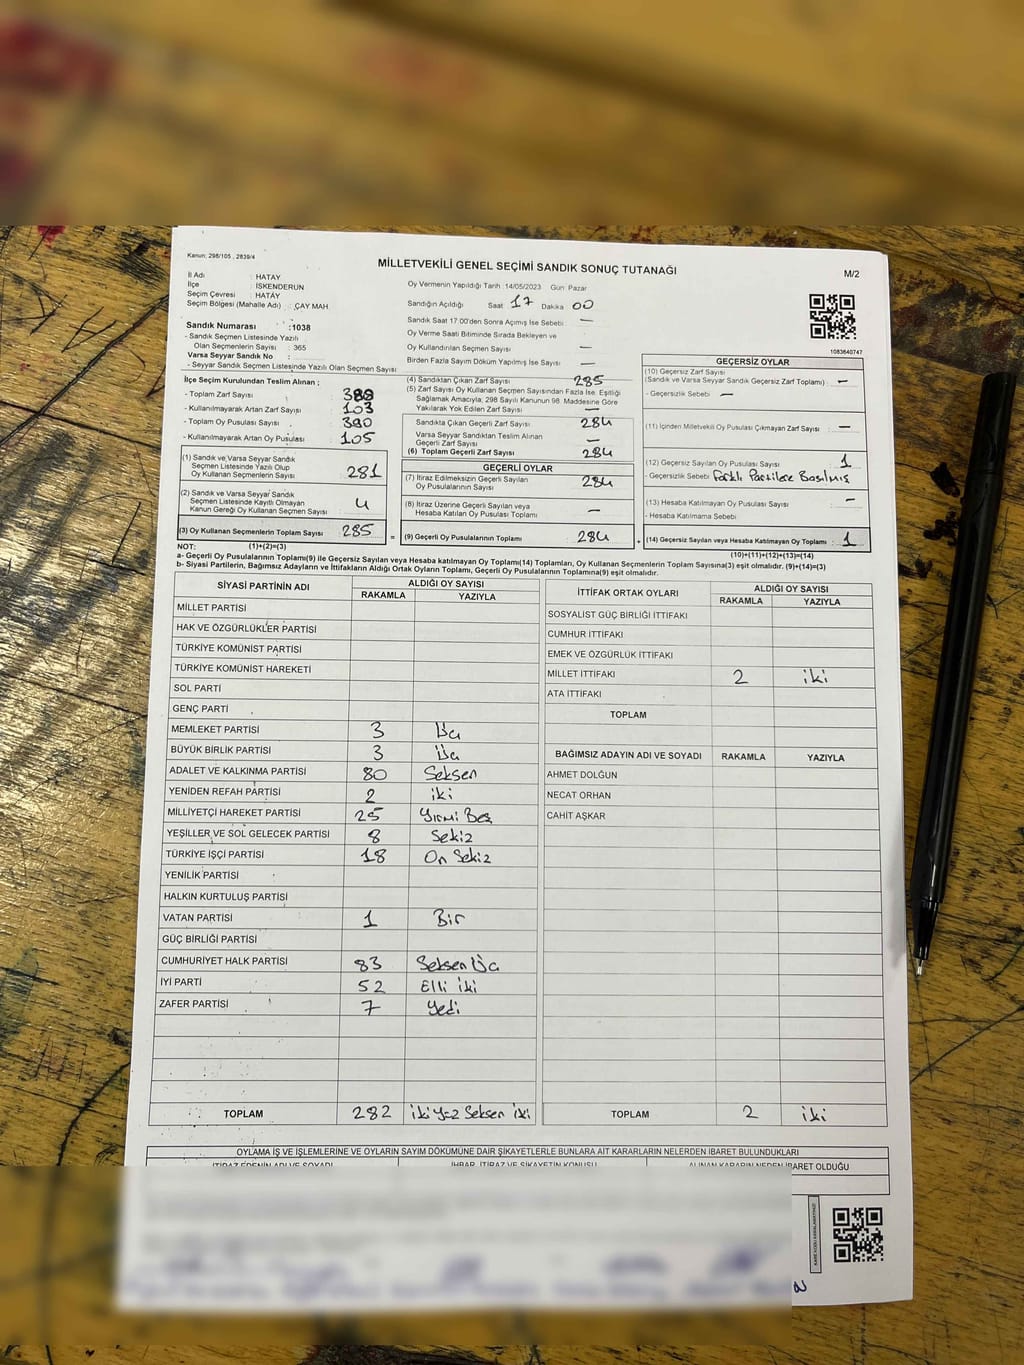 Kanun; 298/105 , 2839/4
MİLLETVEKİLİ GENEL SEÇİMİ SANDIK SONUÇ TUTANAĞI
M/2
İl Adı : HATAY
İlçe : İSKENDERUN
Seçim Çevresi : HATAY
Seçim Bölgesi (Mahalle Adı) : ÇAY MAH.
Sandık Numarası :1038
- Sandık Seçmen Listesinde Yazılı
Olan Seçmenlerin Sayısı : 365
Varsa Seyyar Sandık No :
- Seyyar Sandık Seçmen Listesinde Yazılı Olan Seçmen Sayısı
Oy Vermenin Yapıldığı Tarih :14/05/2023 Gün: Pazar
Sandığın Açıldığı Saat 17 Dakika 00
Sandık Saat 17:00'den Sonra Açımış İse Sebebi: —
Oy Verme Saati Bitiminde Sırada Bekleyen ve
Oy Kullandırılan Seçmen Sayısı —
Birden Fazla Sayım Döküm Yapılmış İse Sayısı —
1083640747
İlçe Seçim Kurulundan Teslim Alınan ;
- Toplam Zarf Sayısı
- Kullanılmayarak Artan Zarf Sayısı : 103
- Toplam Oy Pusulası Sayısı : 390
- Kullanılmayarak Artan Oy Pusulası : 105
(1) Sandık ve Varsa Seyyar Sandık
Seçmen Listesinde Yazılı Olup
Oy Kullanan Seçmenlerin Sayısı 281
(2) Sandık ve Varsa Seyyar Sandık
Seçmen Listesinde Kayıtlı Olmayan
Kanun Gereği Oy Kullanan Seçmen Sayısı 4
(3) Oy Kullanan Seçmenlerin Toplam Sayısı 285
(4) Sandıktan Çıkan Zarf Sayısı 285
(5) Zarf Sayısı Oy Kullanan Seçmen Sayısından Fazla İse, Eşitliği
Sağlamak Amacıyla, 298 Sayılı Kanunun 98. Maddesine Göre
Yakılarak Yok Edilen Zarf Sayısı —
Sandıkta Çıkan Geçerli Zarf Sayısı 284
Varsa Seyyar Sandıktan Teslim Alınan
Geçerli Zarf Sayısı —
(6) Toplam Geçerli Zarf Sayısı 284
GEÇERLİ OYLAR
(7) İtiraz Edilmeksizin Geçerli Sayılan
Oy Pusulalarının Sayısı 284
(8) İtiraz Üzerine Geçerli Sayılan veya
Hesaba Katılan Oy Pusulası Toplamı —
= (9) Geçerli Oy Pusulalarının Toplamı 284
GEÇERSİZ OYLAR
(10) Geçersiz Zarf Sayısı
(Sandık ve Varsa Seyyar Sandık Geçersiz Zarf Toplamı) : —
- Geçersizlik Sebebi : —
(11) İçinden Milletvekili Oy Pusulası Çıkmayan Zarf Sayısı : —
(12) Geçersiz Sayılan Oy Pusulası Sayısı 1
- Geçersizlik Sebebi : Farklı Partilere Basılmış
(13) Hesaba Katılmayan Oy Pusulası Sayısı —
- Hesaba Katılmama Sebebi
+ (14) Geçersiz Sayılan veya Hesaba Katılmayan Oy Toplamı 1
NOT: (1)+(2)=(3)
(10)+(11)+(12)+(13)=(14)
a- Geçerli Oy Pusulalarının Toplamı(9) ile Geçersiz Sayılan veya Hesaba katılmayan Oy Toplamı(14) Toplamları, Oy Kullanan Seçmenlerin Toplam Sayısına(3) eşit olmalıdır. (9)+(14)=(3)
b- Siyasi Partilerin, Bağımsız Adayların ve İttifakların Aldığı Ortak Oyların Toplamı, Geçerli Oy Pusulalarının Toplamına(9) eşit olmalıdır.
SİYASİ PARTİNİN ADI ALDIĞI OY SAYISI
RAKAMLA YAZIYLA
MİLLET PARTİSİ
HAK VE ÖZGÜRLÜKLER PARTİSİ
TÜRKİYE KOMÜNİST PARTİSİ
TÜRKİYE KOMÜNİST HAREKETİ
SOL PARTİ
GENÇ PARTİ
MEMLEKET PARTİSİ 3 Üç
BÜYÜK BİRLİK PARTİSİ 3 Üç
ADALET VE KALKINMA PARTİSİ 80 Seksen
YENİDEN REFAH PARTİSİ 2 iki
MİLLİYETÇİ HAREKET PARTİSİ 25 Yirmi Beş
YEŞİLLER VE SOL GELECEK PARTİSİ 8 Sekiz
TÜRKİYE İŞÇİ PARTİSİ 18 On Sekiz
YENİLİK PARTİSİ
HALKIN KURTULUŞ PARTİSİ
VATAN PARTİSİ 1 Bir
GÜÇ BİRLİĞİ PARTİSİ
CUMHURİYET HALK PARTİSİ 83 Seksen Üç
İYİ PARTİ 52 Elli iki
ZAFER PARTİSİ 7 Yedi
TOPLAM 282 iki yüz Seksen iki
İTTİFAK ORTAK OYLARI ALDIĞI OY SAYISI
RAKAMLA YAZIYLA
SOSYALİST GÜÇ BİRLİĞİ İTTİFAKI
CUMHUR İTTİFAKI
EMEK VE ÖZGÜRLÜK İTTİFAKI
MİLLET İTTİFAKI 2 iki
ATA İTTİFAKI
TOPLAM
BAĞIMSIZ ADAYIN ADI VE SOYADI RAKAMLA YAZIYLA
AHMET DOLĞUN
NECAT ORHAN
CAHİT AŞKAR
TOPLAM 2 iki
OYLAMA İŞ VE İŞLEMLERİNE VE OYLARIN SAYIM DÖKÜMÜNE DAİR ŞİKAYETLERLE BUNLARA AİT KARARLARIN NELERDEN İBARET BULUNDUKLARI
İTİRAZ EDENİN ADI VE SOYADI İHBAR, İTİRAZ VE ŞİKAYETİN KONUSU ALINAN KARARIN NEDEN İBARET OLDUĞU